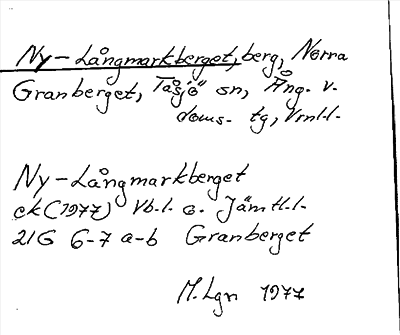 Ny-Långmarkberget, berg, Norra
Granberget, Tåsjö sn, Ång. v.
doms- tg, Vrnl-l.
Ny-Långmarkberget
ek (1977) Vb.l. o. Jämtl.l.
21G 6-7 a-b Granberget
M. Lgn 1977